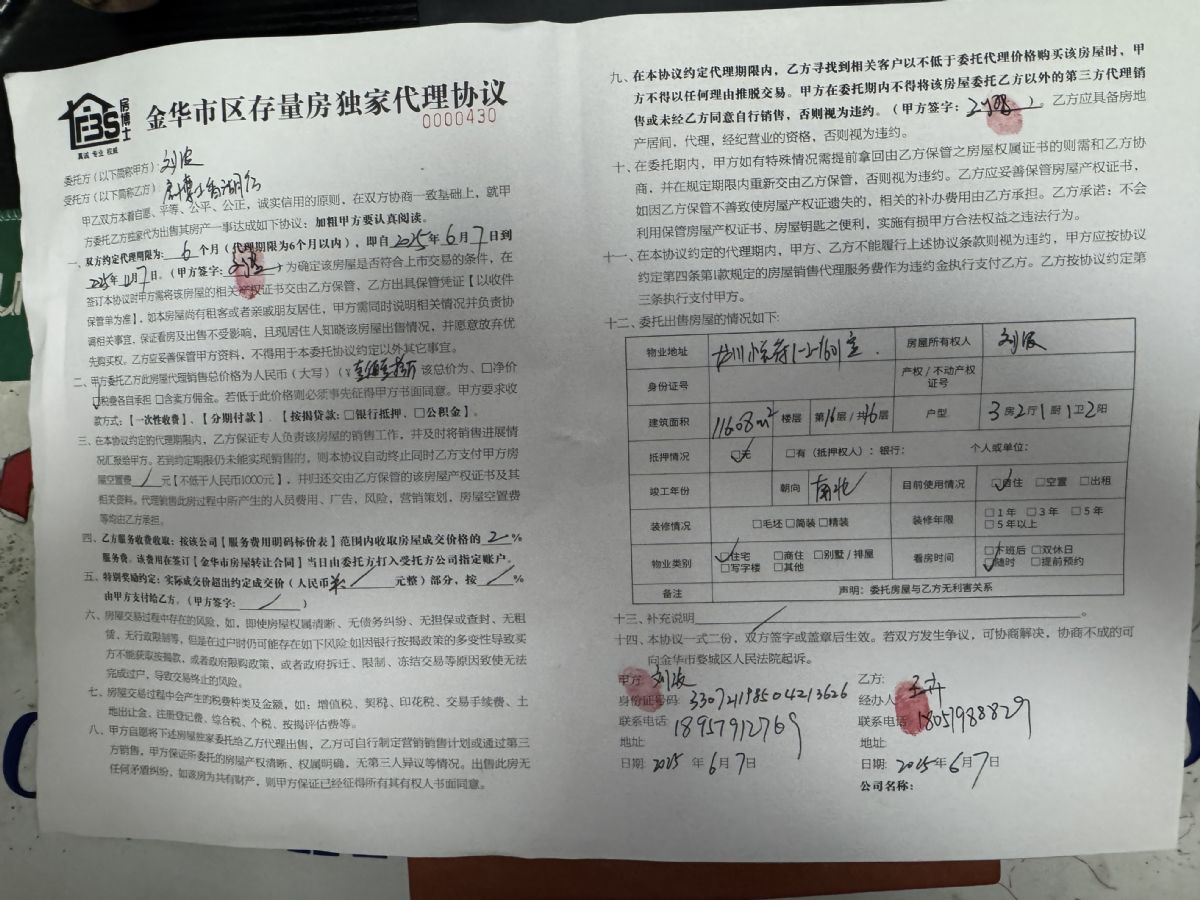 房博士
FBS
真诚 专业 权威
金华市区存量房独家代理协议
0000430
委托方（以下简称甲方）：刘波
受托方（以下简称乙方）：房博士
甲乙双方本着自愿、平等、公平、公正，诚实信用的原则，在双方协商一致基础上，就甲
方委托乙方独家代为出售其房产一事达成如下协议：加粗甲方要认真阅读。
一、双方约定代理期限为：6个月（代理期限为6个月以内），即自2025年6月7日到
2025年12月7日。（甲方签字：刘波）为确定该房屋是否符合上市交易的条件，在
签订本协议时甲方需将该房屋的相关产权证书交由乙方保管，乙方出具保管凭证【以收件
保管单为准】，如本房屋尚有租客或者亲戚朋友居住，甲方需同时说明相关情况并负责协
调相关事宜，保证看房及出售不受影响，且现居住人知晓该房屋出售情况，并愿意放弃优
先购买权。乙方应妥善保管甲方资料，不得用于本委托协议约定以外其它事宜。
二、甲方委托乙方此房屋代理销售总价格为人民币（大写）（¥ 该总价为、□净价
☑税费各自承担 □含卖方佣金。若低于此价格则必须事先征得甲方书面同意。甲方要求收
款方式：【一次性收费】、【分期付款】、【按揭贷款：□银行抵押、□公积金】。
三、在本协议约定的代理期限内，乙方保证专人负责该房屋的销售工作，并及时将销售进展情
况汇报给甲方。若到约定期限仍未能实现销售的，则本协议自动终止同时乙方支付甲方房
屋空置费 / 元【不低于人民币1000元】，并归还交由乙方保管的该房屋产权证书及其
相关资料。代理销售此房过程中所产生的人员费用、广告，风险，营销策划，房屋空置费
等均由乙方承担。
四、乙方服务收费收取：按该公司【服务费用明码标价表】范围内收取房屋成交价格的 2 %
服务费。该费用在签订【金华市房屋转让合同】当日由委托方打入受托方公司指定账户。
五、特别奖励约定：实际成交价超出约定成交价（人民币 / 元整）部分，按 / %
由甲方支付给乙方。（甲方签字： / ）
六、房屋交易过程中存在的风险，如，即使房屋权属清晰、无债务纠纷、无担保或查封、无租
赁，无行政限制等，但是在过户时仍可能存在如下风险:如因银行按揭政策的多变性导致买
方不能获取按揭款，或者政府限购政策，或者政府拆迁、限制、冻结交易等原因致使无法
完成过户，导致交易终止的风险。
七、房屋交易过程中会产生的税费种类及金额，如：增值税、契税、印花税、交易手续费、土
地出让金、注册登记费、综合税、个税、按揭评估费等。
八、甲方自愿将下述房屋独家委托给乙方代理出售，乙方可自行制定营销销售计划或通过第三
方销售，甲方保证所委托的房屋产权清晰、权属明确，无第三人异议等情况。出售此房无
任何矛盾纠纷，如该房为共有财产，则甲方保证已经征得所有其有权人书面同意。
九、在本协议约定代理期限内，乙方寻找到相关客户以不低于委托代理价格购买该房屋时，甲
方不得以任何理由推脱交易。甲方在委托期内不得将该房屋委托乙方以外的第三方代理销
售或未经乙方同意自行销售，否则视为违约。（甲方签字：刘波）乙方应具备房地
产居间，代理，经纪营业的资格，否则视为违约。
十、在委托期内，甲方如有特殊情况需提前拿回由乙方保管之房屋权属证书的则需和乙方协
商，并在规定期限内重新交由乙方保管，否则视为违约。乙方应妥善保管房屋产权证书，
如因乙方保管不善致使房屋产权证遗失的，相关的补办费用由乙方承担。乙方承诺：不会
利用保管房屋产权证书、房屋钥匙之便利，实施有损甲方合法权益之违法行为。
十一、在本协议约定的代理期内，甲方、乙方不能履行上述协议条款则视为违约，甲方应按协议
约定第四条第1款规定的房屋销售代理服务费作为违约金执行支付乙方。乙方按协议约定第
三条执行支付甲方。
十二、委托出售房屋的情况如下:
物业地址 1-2-1601室. 房屋所有权人 刘波
身份证号 产权 / 不动产权证号
建筑面积 116.08m² 楼层 第16层 / 共16层 户型 3房2厅1厨1卫2阳
抵押情况 ☑无 □有（抵押权人）：银行： 个人或单位：
竣工年份 朝向 南北 目前使用情况 ☑自住 □空置 □出租
装修情况 □毛坯 □简装 □精装 装修年限 □1年 □3年 □5年 □5年以上
物业类别 ☑住宅 □商住 □别墅 / 排屋 □写字楼 □其他 看房时间 □下班后 □双休日 ☑随时 □提前预约
备注 声明：委托房屋与乙方无利害关系
十三、补充说明 / 。
十四、本协议一式二份，双方签字或盖章后生效。若双方发生争议，可协商解决，协商不成的可
向金华市婺城区人民法院起诉。
甲方：刘波 乙方：
身份证号码：330721198504213626 经办人：王卉
联系电话：18957912769 联系电话：18057988829
地址： 地址：
日期：2025年6月7日 日期：2025年6月7日
公司名称：